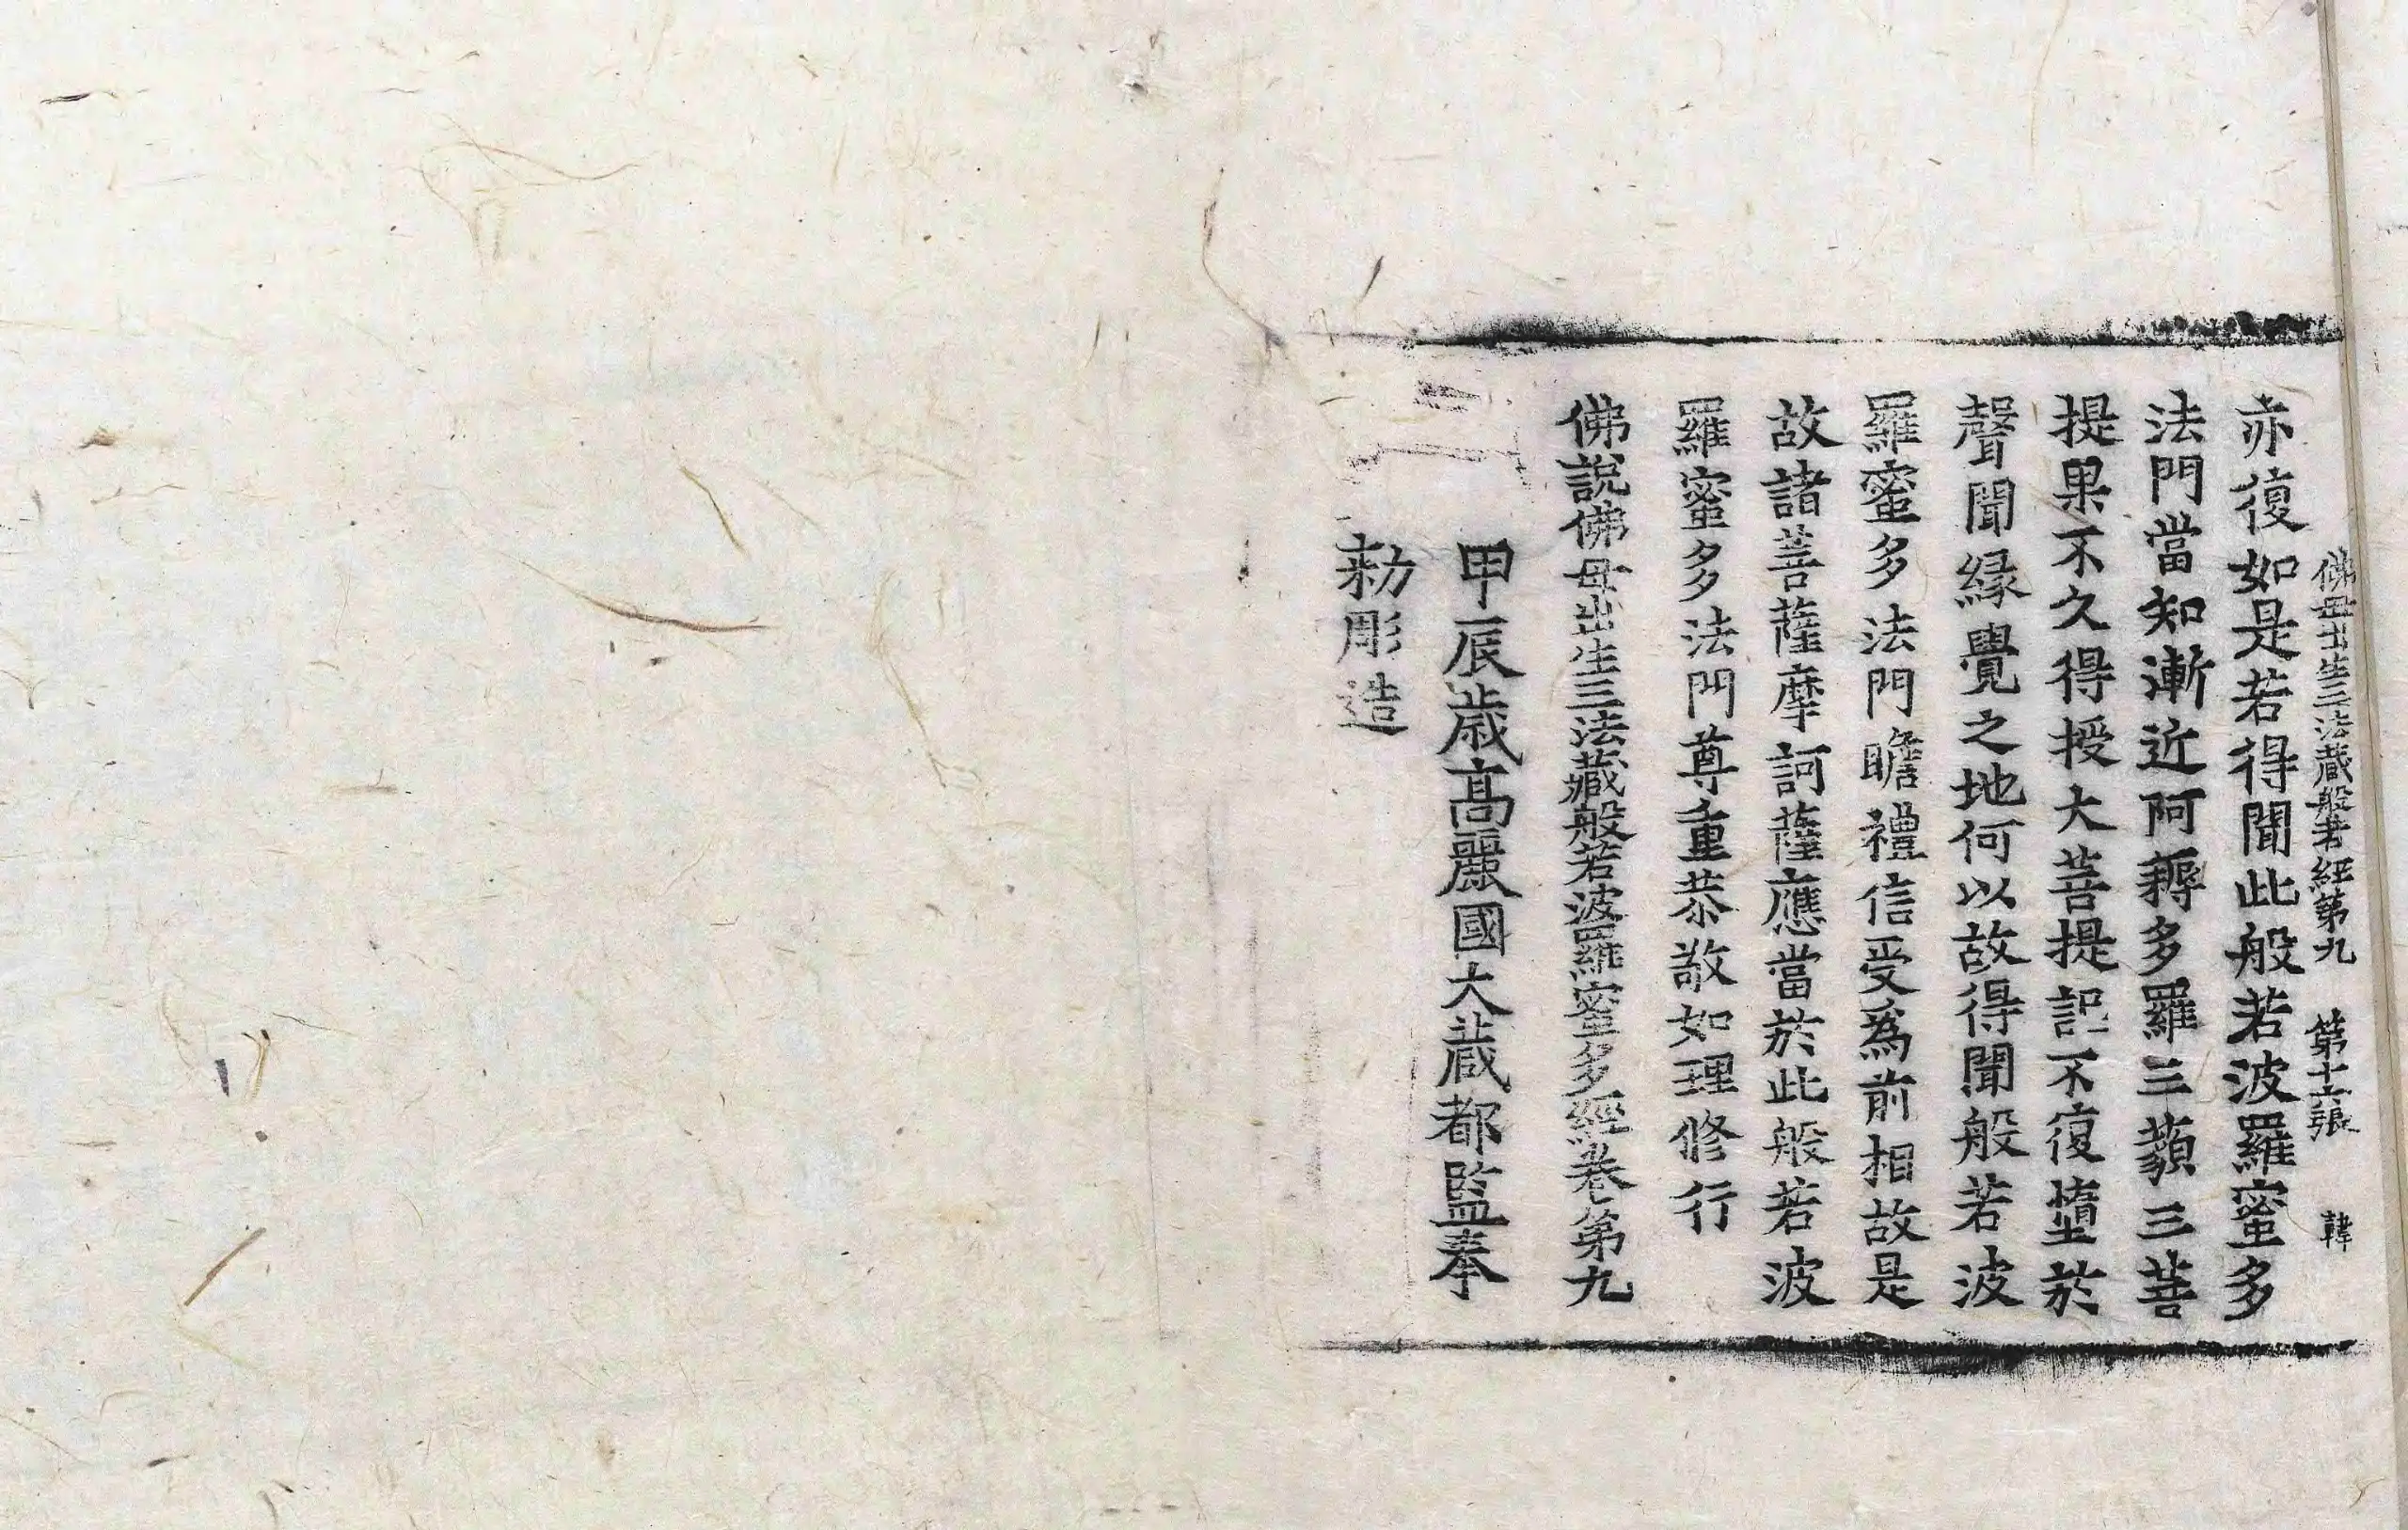 佛母出生三法藏般若經第九 第十六張 韓
亦復如是若得聞此般若波羅蜜多
法門當知漸近阿耨多羅三藐三菩
提果不久得授大菩提記不復墮於
聲聞緣覺之地何以故得聞般若波
羅蜜多法門瞻禮信受為前相故是
故諸菩薩摩訶薩應當於此般若波
羅蜜多法門尊重恭敬如理修行
佛說佛母出生三法藏般若波羅蜜多經卷第九
甲辰歲高麗國大藏都監奉
勑彫造